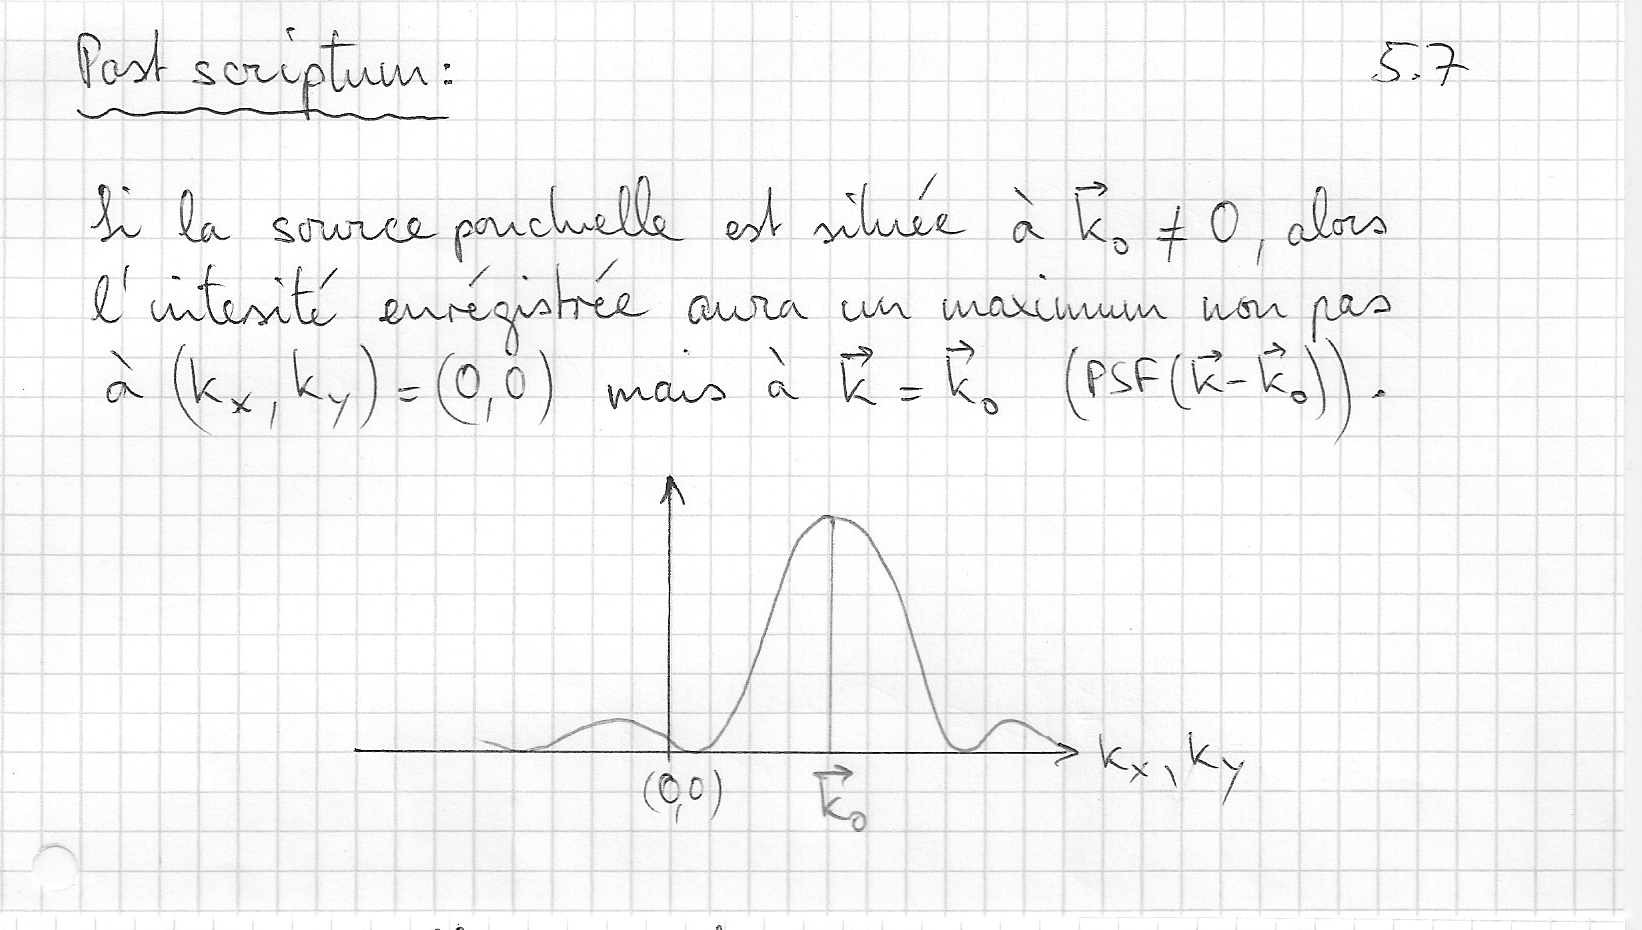 Post scriptum:
5.7
Si la source ponctuelle est située à k⃗₀ ≠ 0, alors
l'intesité enrégistrée aura un maximum non pas
à (kₓ, k_y) = (0,0) mais à k⃗ = k⃗₀ (PSF(k⃗-k⃗₀)).
kₓ, k_y
(0,0)
k⃗₀